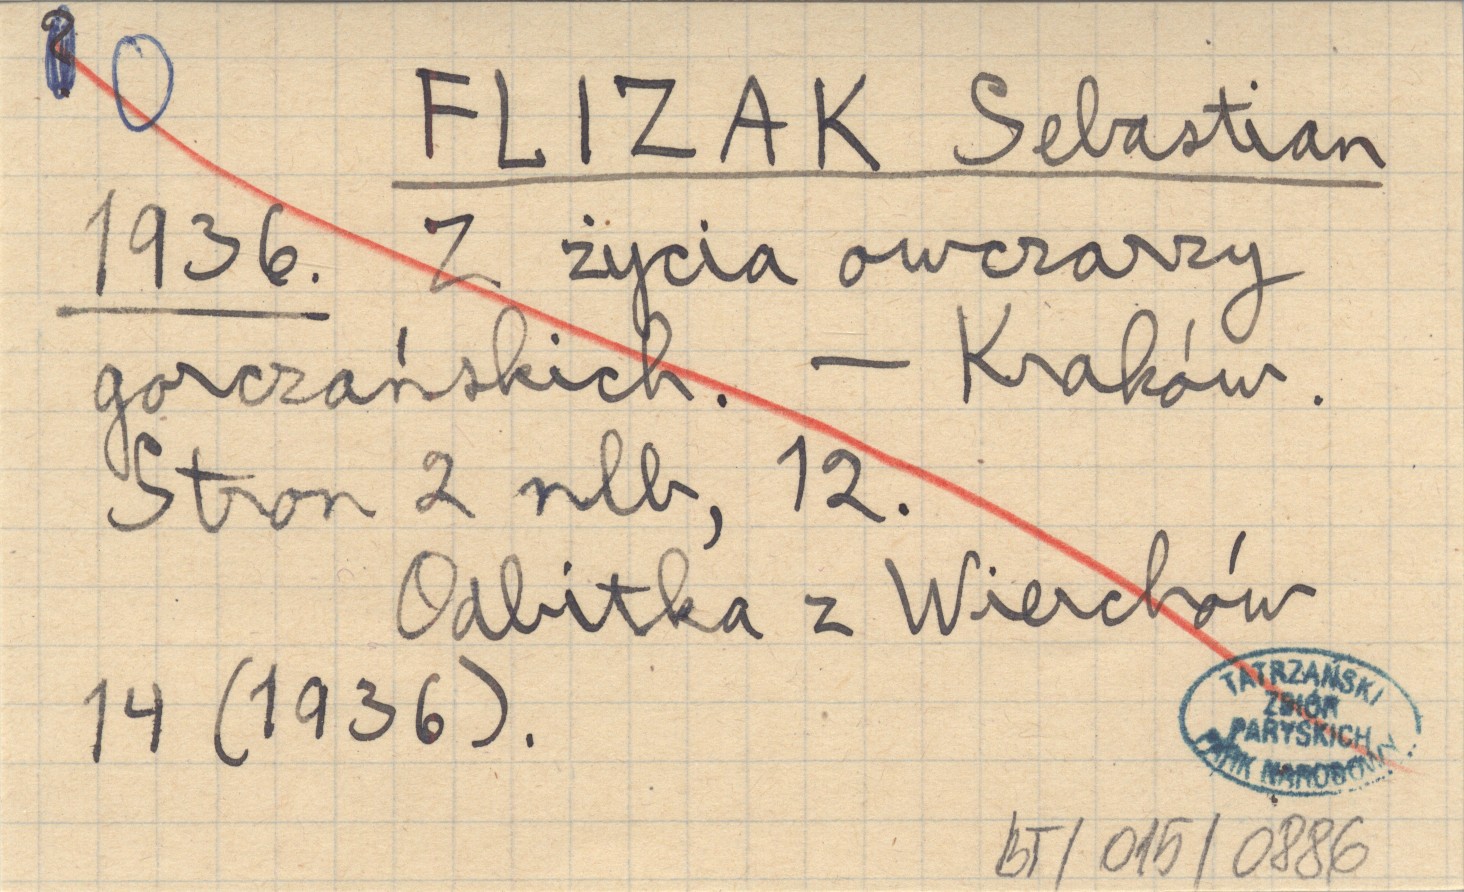 FLIZAK Sebastian
1936. Z życia owczarzy
gorczańskich. — Kraków.
Stron 2 nlb, 12.
Odbitka z Wierchów
14 (1936).
TATRZAŃSKI
ZBIÓR
PARYSKICH
PARK NARODOWY
BT/015/0886